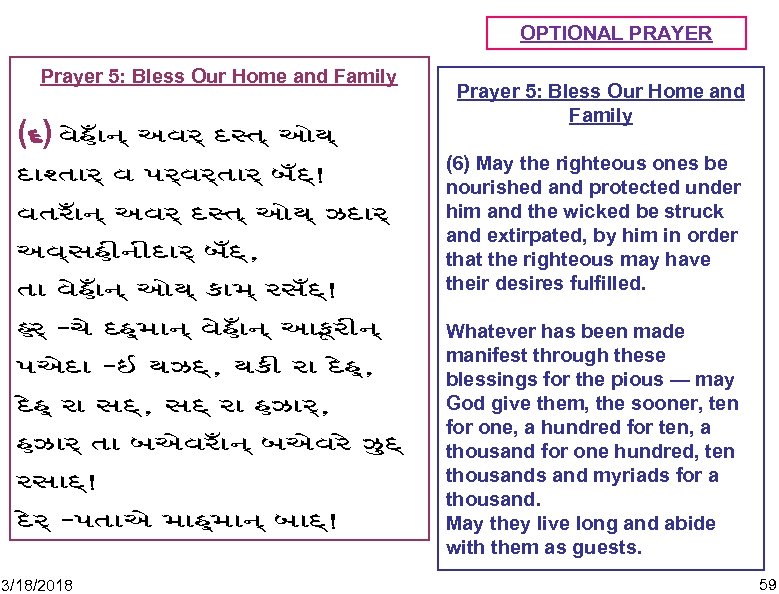 OPTIONAL PRAYER
Prayer 5: Bless Our Home and Family
(૬) વેહ્રાઁન્ અવર્ દસ્ત્ ઓય્
દાશ્તાર્ વ પર્વર્તાર્ બઁદ્!
વતરાઁન્ અવર્ દસ્ત્ ઓય્ ઝદાર્
અવ્સહીનીદાર્ બઁદ્,
તા વેહાઁન્ ઓય્ કામ્ રસઁદ્!
હર્ -ચે દહ્માન્ વેહાઁન્ આફ્રીન્
પએદા -ઈ યઝદ્, યકી રા દેહ્,
દેહ્ રા સદ્, સદ્ રા હઝાર્,
હઝાર્ તા બએવરાઁન્ બએવરે ઝુદ્
રસાદ્!
દેર્ -પતાએ માહ્માન્ બાદ્!
Prayer 5: Bless Our Home and
Family
(6) May the righteous ones be
nourished and protected under
him and the wicked be struck
and extirpated, by him in order
that the righteous may have
their desires fulfilled.
Whatever has been made
manifest through these
blessings for the pious — may
God give them, the sooner, ten
for one, a hundred for ten, a
thousand for one hundred, ten
thousands and myriads for a
thousand.
May they live long and abide
with them as guests.
3/18/2018
59